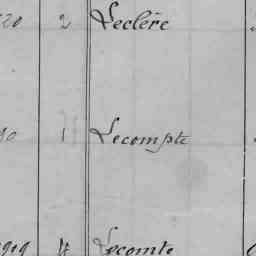 20 2 Leclère
10 1 Lecompte
1919 4 Lecomte